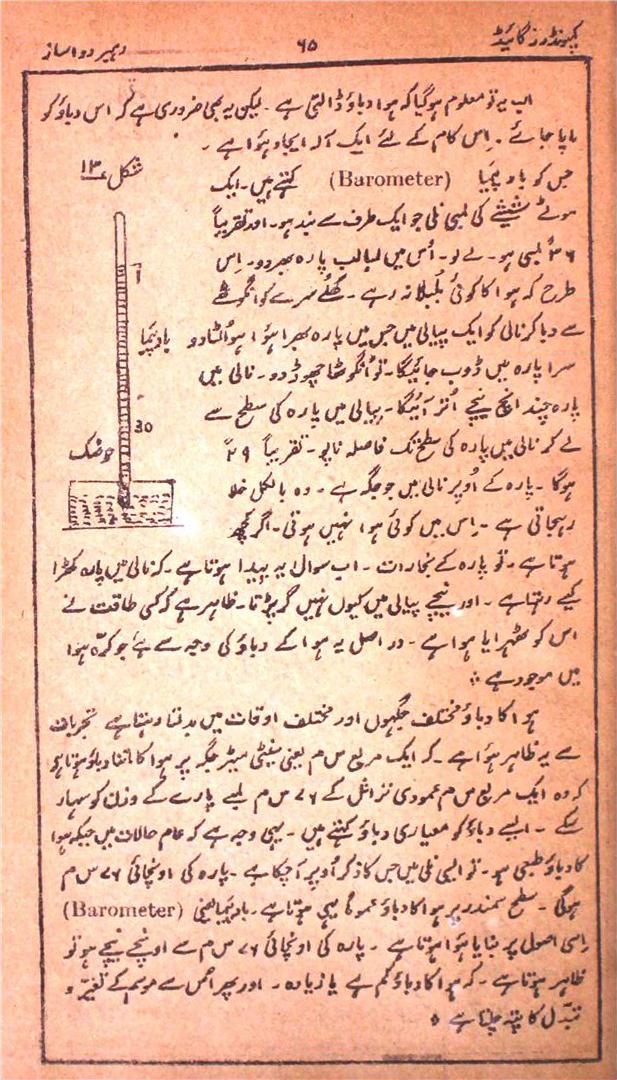 کمپونڈرز گائیڈ ۶۵ رہبر دواساز
اب یہ تو معلوم ہوگیا کہ ہوا دباؤ ڈالتی ہے ۔ لیکن یہ بھی ضروری ہے کہ اس دباؤ کو
ماپا جائے ۔ اِس کام کے لئے ایک آلہ ایجاد ہؤا ہے ۔
شکل ۱۳
جس کو باد پیما (Barometer) کہتے ہیں ۔ ایک
موٹے شیشے کی لمبی نلی جو ایک طرف سے بند ہو ۔ اور تقریباً
۳۶ً لمبی ہو ۔ لے لو ۔ اُس میں لبالب پارہ بھر دو ۔ اِس
طرح کہ ہوا کا کوئی بُلبلا نہ رہے ۔ کھُلے سرے کو انگوٹھے
سے دبا کر نالی کو ایک پیالی میں جس میں پارہ بھرا ہؤا ہو اُلٹا دو
باد پیما
سرا پارہ میں ڈوب جائیگا ۔ تو انگوٹھا چھوڑ دو ۔ نالی میں
پارہ چند انچ نیچے اُتر آئیگا ۔ پیالی میں پارہ کی سطح سے
30
لے کر نالی میں پارہ کی سطح تک فاصلہ ناپو ۔ تقریباً ۲۹ً
حوضک
ہوگا ۔ پارہ کے اُوپر نالی میں جو جگہ ہے ۔ وہ بالکل خلا
رہجاتی ہے ۔ اِس میں کوئی ہوا نہیں ہوتی ۔ اگر کچھ
ہوتا ہے ۔ تو پارہ کے بخارات ۔ اب سوال یہ پیدا ہوتا ہے ۔ کہ نالی میں پارہ کھڑا
کیسے رہتا ہے ۔ اور نیچے پیالی میں کیوں نہیں گر پڑتا ۔ ظاہر ہے کہ کسی طاقت نے
اس کو ٹھہرایا ہوا ہے ۔ در اصل یہ ہوا کے دباؤ کی وجہ سے ہے جو کرّہ ہوا
میں موجود ہے ۔
ہوا کا دباؤ مختلف جگہوں اور مختلف اوقات میں بدلتا رہتا ہے تجربات
سے یہ ظاہر ہؤا ہے ۔ کہ ایک مربع س م یعنی سینٹی میٹر جگہ پر ہوا کا اتنا دباؤ ہوتا ہے
کہ وہ ایک مربع س م عمودی تراش کے ۷۶ س م لمبے پارے کے وزن کو سہار
سکے ۔ ایسے دباؤ کو معیاری دباؤ کہتے ہیں ۔ یہی وجہ ہے کہ عام حالات میں جبکہ ہوا
کا دباؤ طبعی ہو ۔ تو ایسی نلی میں جس کا ذکر اُوپر آ چکا ہے ۔ پارہ کی اونچائی ۷۶ س م
ہوگی ۔ سطح سمندر پر ہوا کا دباؤ عموماً یہی ہوتا ہے ۔ باد پیما یعنی (Barometer)
اِسی اصول پر بنایا ہؤا ہوتا ہے ۔ پارہ کی اونچائی ۷۶ س م سے اونچے نیچے ہو تو
ظاہر ہوتا ہے ۔ کہ ہوا کا دباؤ کم ہے یا زیادہ ۔ اور پھر اُس سے موسم کے تغیّر و
تبدّل کا پتہ چلتا ہے ۔